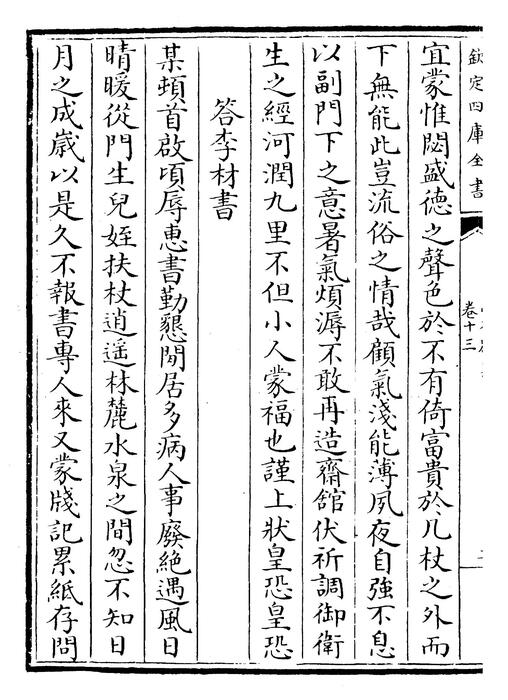 欽定四庫全書
卷十三
宜蒙惟閟盛德之聲色於不有倚富貴於几杖之外而
下無能此豈流俗之情哉顧氣淺能薄夙夜自強不息
以副門下之意暑氣煩溽不敢再造齋舘伏祈調御衛
生之經河潤九里不但小人蒙福也謹上狀皇恐皇恐
答李材書
某頓首啟頃辱惠書勤懇閒居多病人事廢絶遇風日
晴暖從門生兒姪扶杖逍遥林麓水泉之間忽不知日
月之成歳以是久不報書專人來又蒙牋記累紙存問